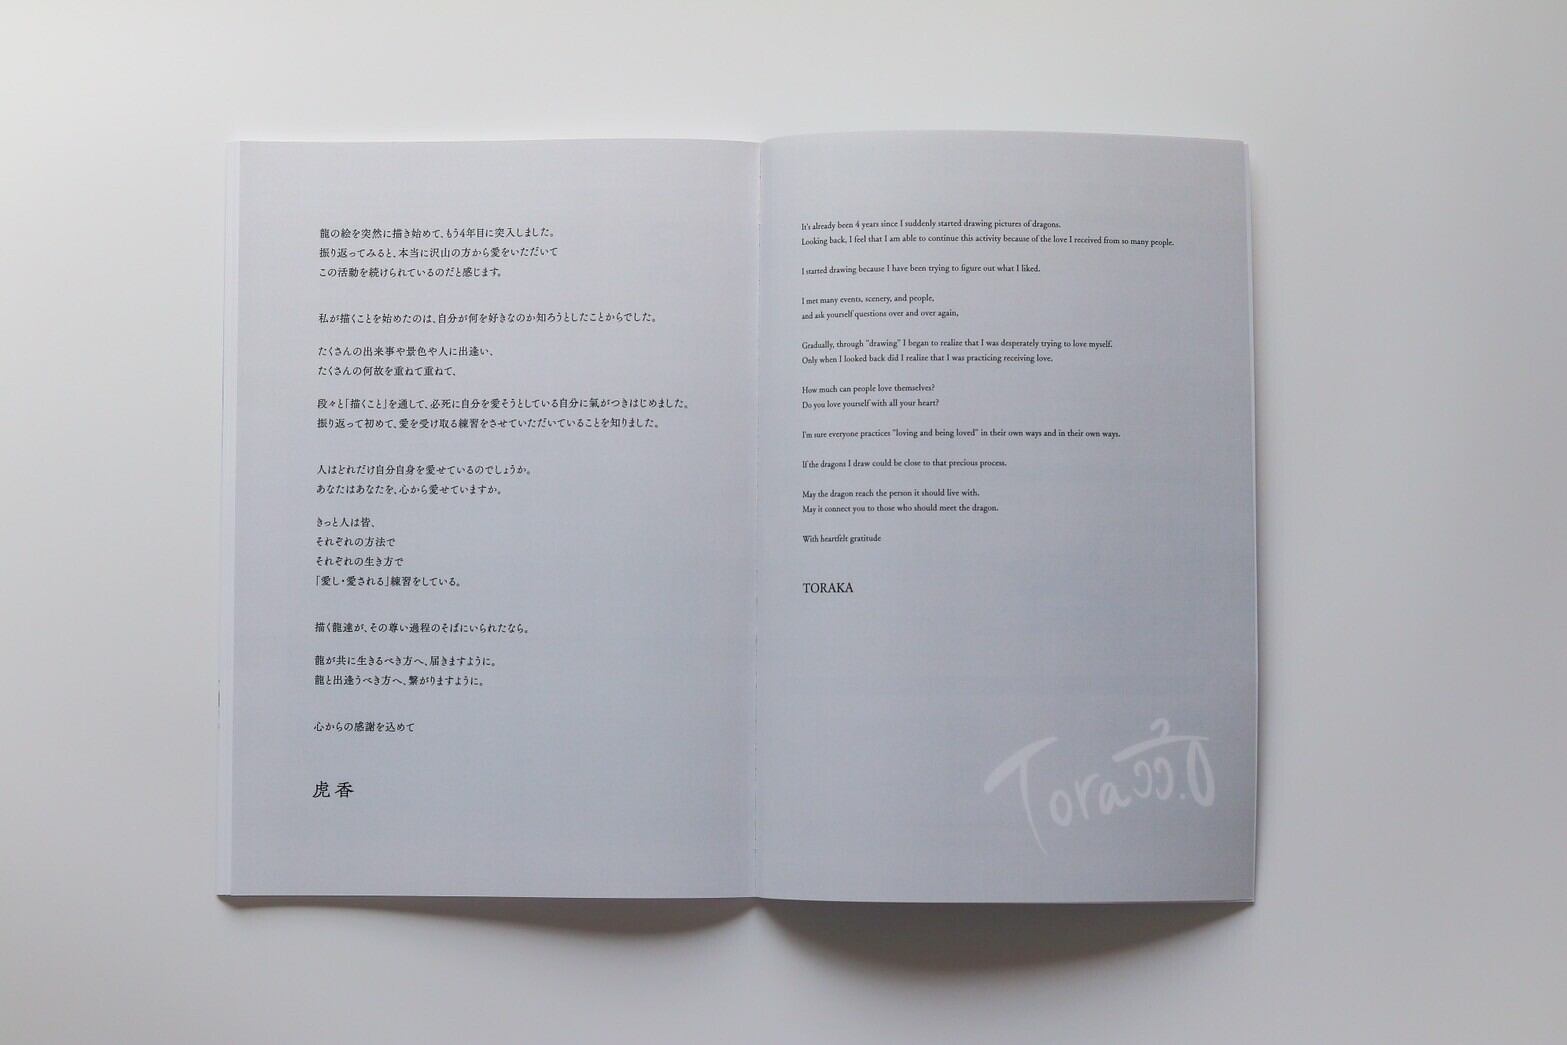 龍の絵を突然に描き始めて、もう4年目に突入しました。
振り返ってみると、本当に沢山の方から愛をいただいて
この活動を続けられているのだと感じます。
私が描くことを始めたのは、自分が何を好きなのか知ろうとしたことからでした。
たくさんの出来事や景色や人に出逢い、
たくさんの何故を重ねて重ねて、
段々と「描くこと」を通して、必死に自分を愛そうとしている自分に氣がつきはじめました。
振り返って初めて、愛を受け取る練習をさせていただいていることを知りました。
人はどれだけ自分自身を愛せているのでしょうか。
あなたはあなたを、心から愛せていますか。
きっと人は皆、
それぞれの方法で
それぞれの生き方で
「愛し・愛される」練習をしている。
描く龍達が、その尊い過程のそばにいられたなら。
龍が共に生きるべき方へ、届きますように。
龍と出逢うべき方へ、繋がりますように。
心からの感謝を込めて
虎香
It's already been 4 years since I suddenly started drawing pictures of dragons.
Looking back, I feel that I am able to continue this activity because of the love I received from so many people.
I started drawing because I have been trying to figure out what I liked.
I met many events, scenery, and people,
and ask yourself questions over and over again,
Gradually, through "drawing" I began to realize that I was desperately trying to love myself.
Only when I looked back did I realize that I was practicing receiving love.
How much can people love themselves?
Do you love yourself with all your heart?
I'm sure everyone practices "loving and being loved" in their own ways and in their own ways.
If the dragons I draw could be close to that precious process.
May the dragon reach the person it should live with.
May it connect you to those who should meet the dragon.
With heartfelt gratitude
TORAKA
Tora